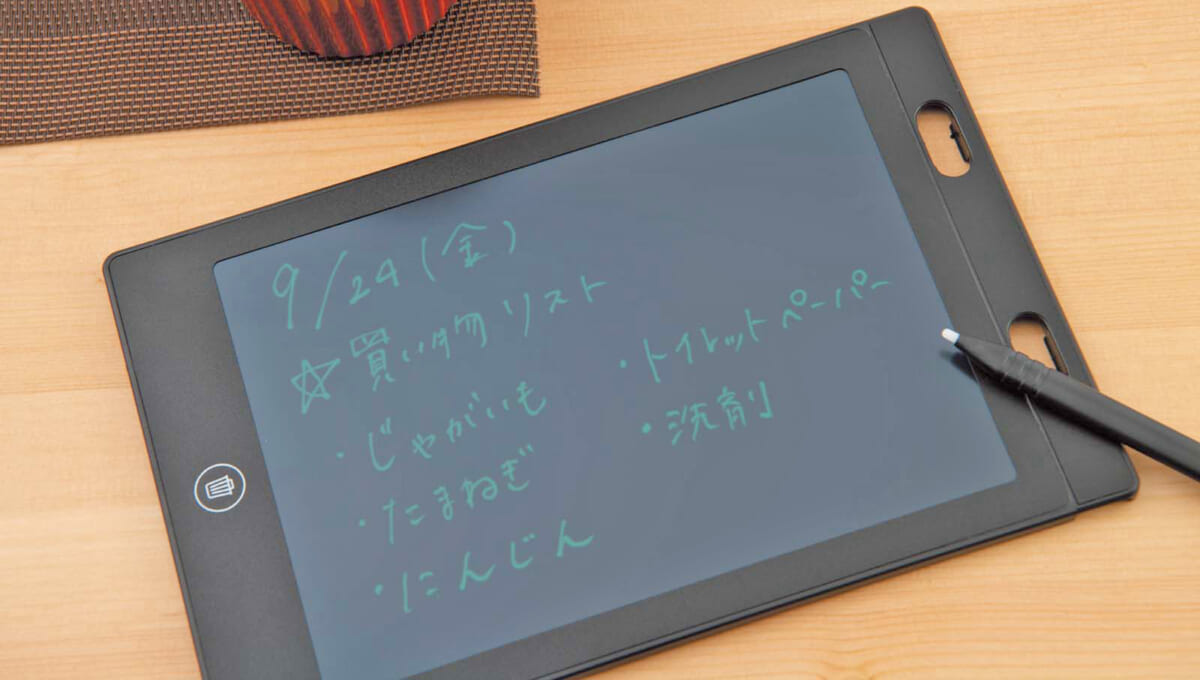 9/24(金)
☆買い物リスト
・じゃがいも
・たまねぎ
・にんじん
・トイレットペーパー
・洗剤